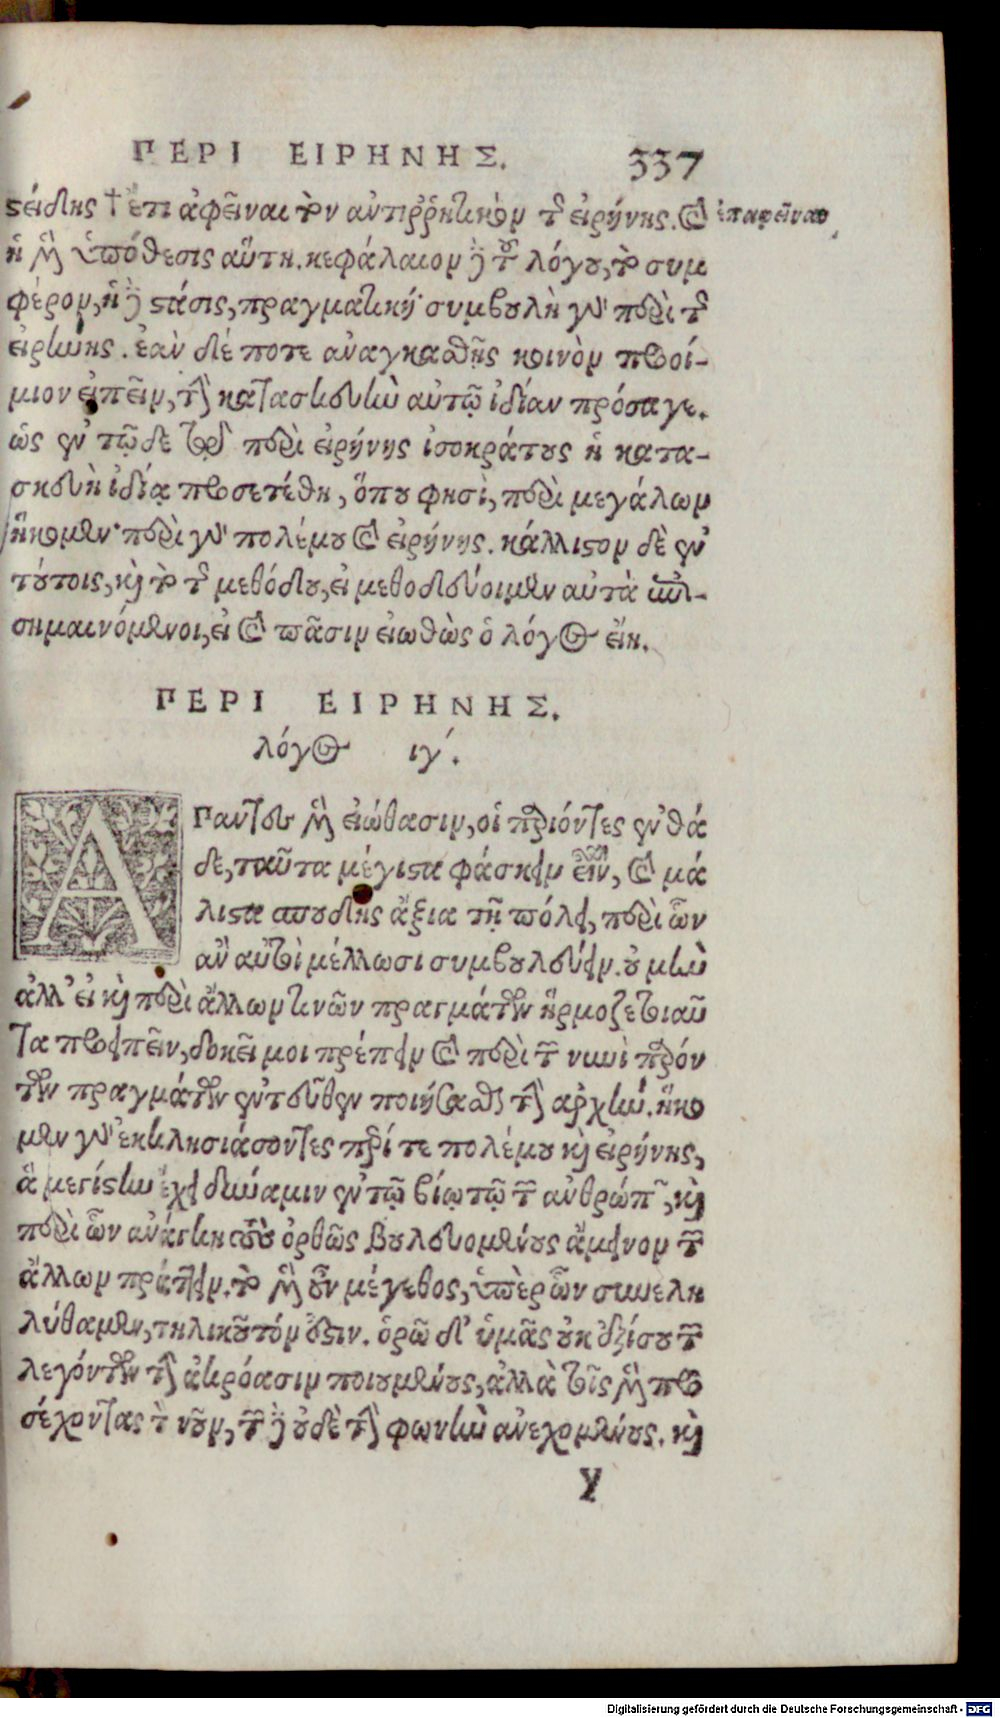 ΠΕΡΙ ΕΙΡΗΝΗΣ. 337
ϛείδης † ἔτι ἀφεῖναι τὸν ἀντιῤῥητικὸν τῆς εἰρήνης. καὶ ἐπαφεῖναι
ἡ μὲν ὑπόθεσις αὕτη. κεφάλαιον δὲ τοῦ λόγου, τὸ συμ
φέρον, ἡ δὲ ϛάσις, πραγματική· συμβουλὴ γὰρ περὶ τῆς
εἰρήνης. ἐὰν δέ ποτε ἀναγκασθῇς κοινὸν προοί-
μιον εἰπεῖν, τὴν κατασκευὴν αὐτῷ ἰδίαν πρόσαγε.
ὡς ἐν τῷδε τῷ περὶ εἰρήνης ἰσοκράτους ἡ κατα-
σκευὴ ἰδίᾳ προσετέθη, ὅπου φησὶ, περὶ μεγάλων
ἥκομεν· περὶ γὰρ πολέμου καὶ εἰρήνης. κάλλιϛον δὲ ἐν
τούτοις, καὶ τὸ τῆς μεθόδου, εἰ μεθοδεύοιμεν αὐτὰ ἐπι-
σημαινόμενοι, εἰ καὶ πᾶσιν εἰωθὼς ὁ λόγος εἴη.
ΠΕΡΙ ΕΙΡΗΝΗΣ.
λόγος ιγ΄.
ΑΠαντες μὲν εἰώθασιν, οἱ παριόντες ἐνθά
δε, ταῦτα μέγιϛα φάσκειν εἶναι, καὶ μά
λιϛα σπουδῆς ἄξια τῇ πόλει, περὶ ὧν
ἂν αὐτοὶ μέλλωσι συμβουλεύειν. οὐ μὴν
ἀλλ' εἰ καὶ περὶ ἄλλων τινῶν πραγμάτων ἥρμοζε τοιαῦ
τα προειπεῖν, δοκεῖ μοι πρέπειν καὶ περὶ τῶν νυνὶ παρόν
των πραγμάτων ἐντεῦθεν ποιήσασθαι τὴν ἀρχήν. ἥκο
μεν γὰρ ἐκκλησιάσοντες περί τε πολέμου καὶ εἰρήνης,
ἃ μεγίϛην ἔχει δύναμιν ἐν τῷ βίῳ τῷ τῶν ἀνθρώπων, καὶ
περὶ ὧν ἀνάγκη τοὺς ὀρθῶς βουλευομένους ἄμεινον τῶν
ἄλλων πράττειν. τὸ μὲν οὖν μέγεθος, ὑπὲρ ὧν συνελη
λύθαμεν, τηλικοῦτόν ἐϛιν. ὁρῶ δ' ὑμᾶς οὐκ ἐξίσου τῶν
λεγόντων τὴν ἀκρόασιν ποιουμένους, ἀλλὰ τοῖς μὲν προ
σέχοντας τὸν νοῦν, τῶν δὲ οὐδὲ τὴν φωνὴν ἀνεχομένους. καὶ
Y
Digitalisierung gefördert durch die Deutsche Forschungsgemeinschaft - DFG